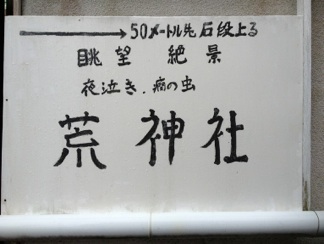 50メートル先石段上る
眺望 絶景
夜泣き.癇の虫
荒神社